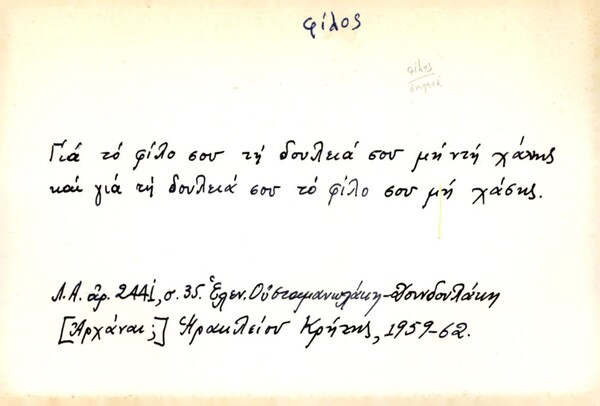 φίλος
φίλος
Γιά τό φίλο σου τή δουλειά σου μή ντή χάνης
καί γιά τή δουλειά σου τό φίλο σου μή χάσης.
Λ.Α. ἀρ. 2441, σ. 35. Ἑλεν. Οὐσταμανωλάκη-
[Ἀρχάναι;] Ἡρακλείου Κρήτης, 1959-62.